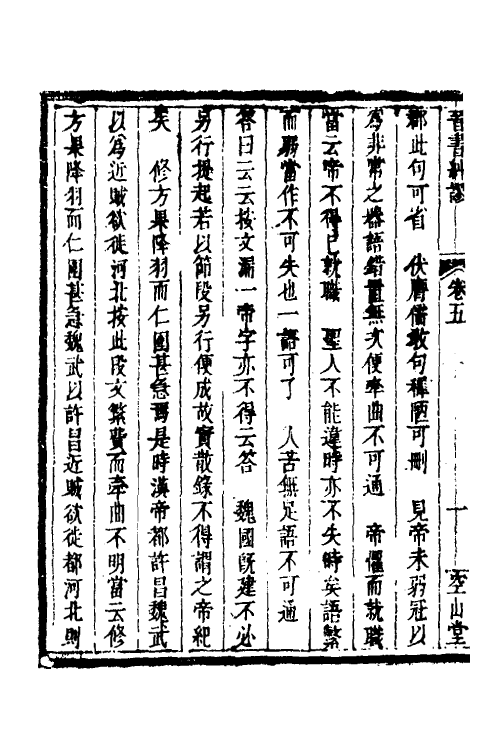 晉書糾謬 卷五 一 空山堂
郡此句可省　伏膺儒教句稚陋可刪　見帝未弱冠以
為非常之器語錯置無次便牽曲不可通　帝懼而就職
當云帝不得已就職　聖人不能違時亦不失時矣語繁
而弱當作不可失也一語可了　人苦無足語不可通
答曰云云按文漏一帝字亦不得云答　魏國既建不必
另行提起若以節段另行便成故實散錄不得謂之帝紀
矣　修方果降羽而仁圍甚急焉是時漢帝都許昌魏武
以為近賊欲徙河北按此段文繁費而牽曲不明當云修
方果降羽而仁圍甚急魏武以許昌近賊欲徙都河北則